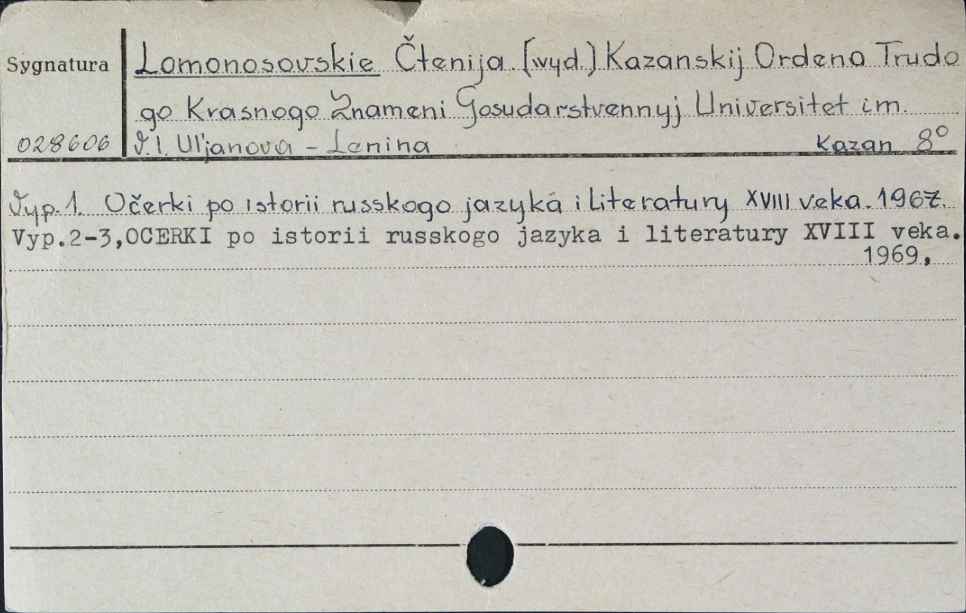 Sygnatura
Lomonosovskie Čtenija. [wyd.] Kazanskij Ordena Trudo
go Krasnogo Znameni Gosudarstvennyj Universitet im.
028606 V.I. Ul'janova - Lenina Kazan 8°
Vyp. 1. Očerki po istorii russkogo jazyka i literatury XVIII veka. 1967.
Vyp.2-3,OCERKI po istorii russkogo jazyka i literatury XVIII veka.
1969,